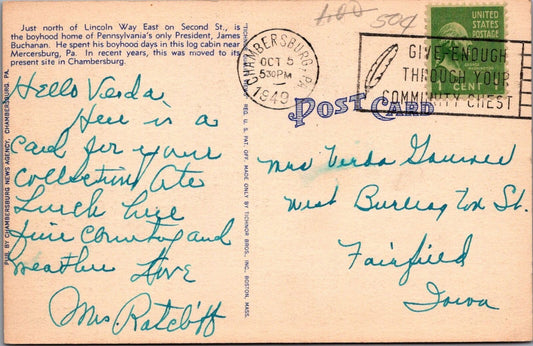 Just north of Lincoln Way East on Second St., is
the boyhood home of Pennsylvania's only President, James
Buchanan. He spent his boyhood days in this log cabin near
Mercersburg, Pa. In recent years, this was moved to its
present site in Chambersburg.
Hello Verda,
Here is a
card for your
collection. Ate
Lunch here
fine country and
weather Love
Mrs Ratcliff
PUB. BY CHAMBERSBURG NEWS AGENCY, CHAMBERSBURG, PA.
REG. U. S. PAT. OFF. MADE ONLY BY TICHNOR BROS., INC., BOSTON, MASS.
1.00 50¢
CHAMBERSBURG, PA.
OCT 5
530 PM
1949
GIVE ENOUGH
THROUGH YOUR
COMMUNITY CHEST
UNITED
STATES
POSTAGE
1 CENT
POST CARD
Mrs Verda
West Burlington St.
Fairfield
Iowa